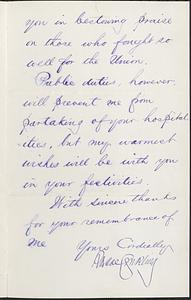 you in bestowing praise
on those who fought so
well for the Union.
Public duties, however,
will prevent me from
partaking of your hospital
ities, but my warmest
wishes will be with you
in your festivities.
With sincere thanks
for your remembrance of
me Yours Cordially